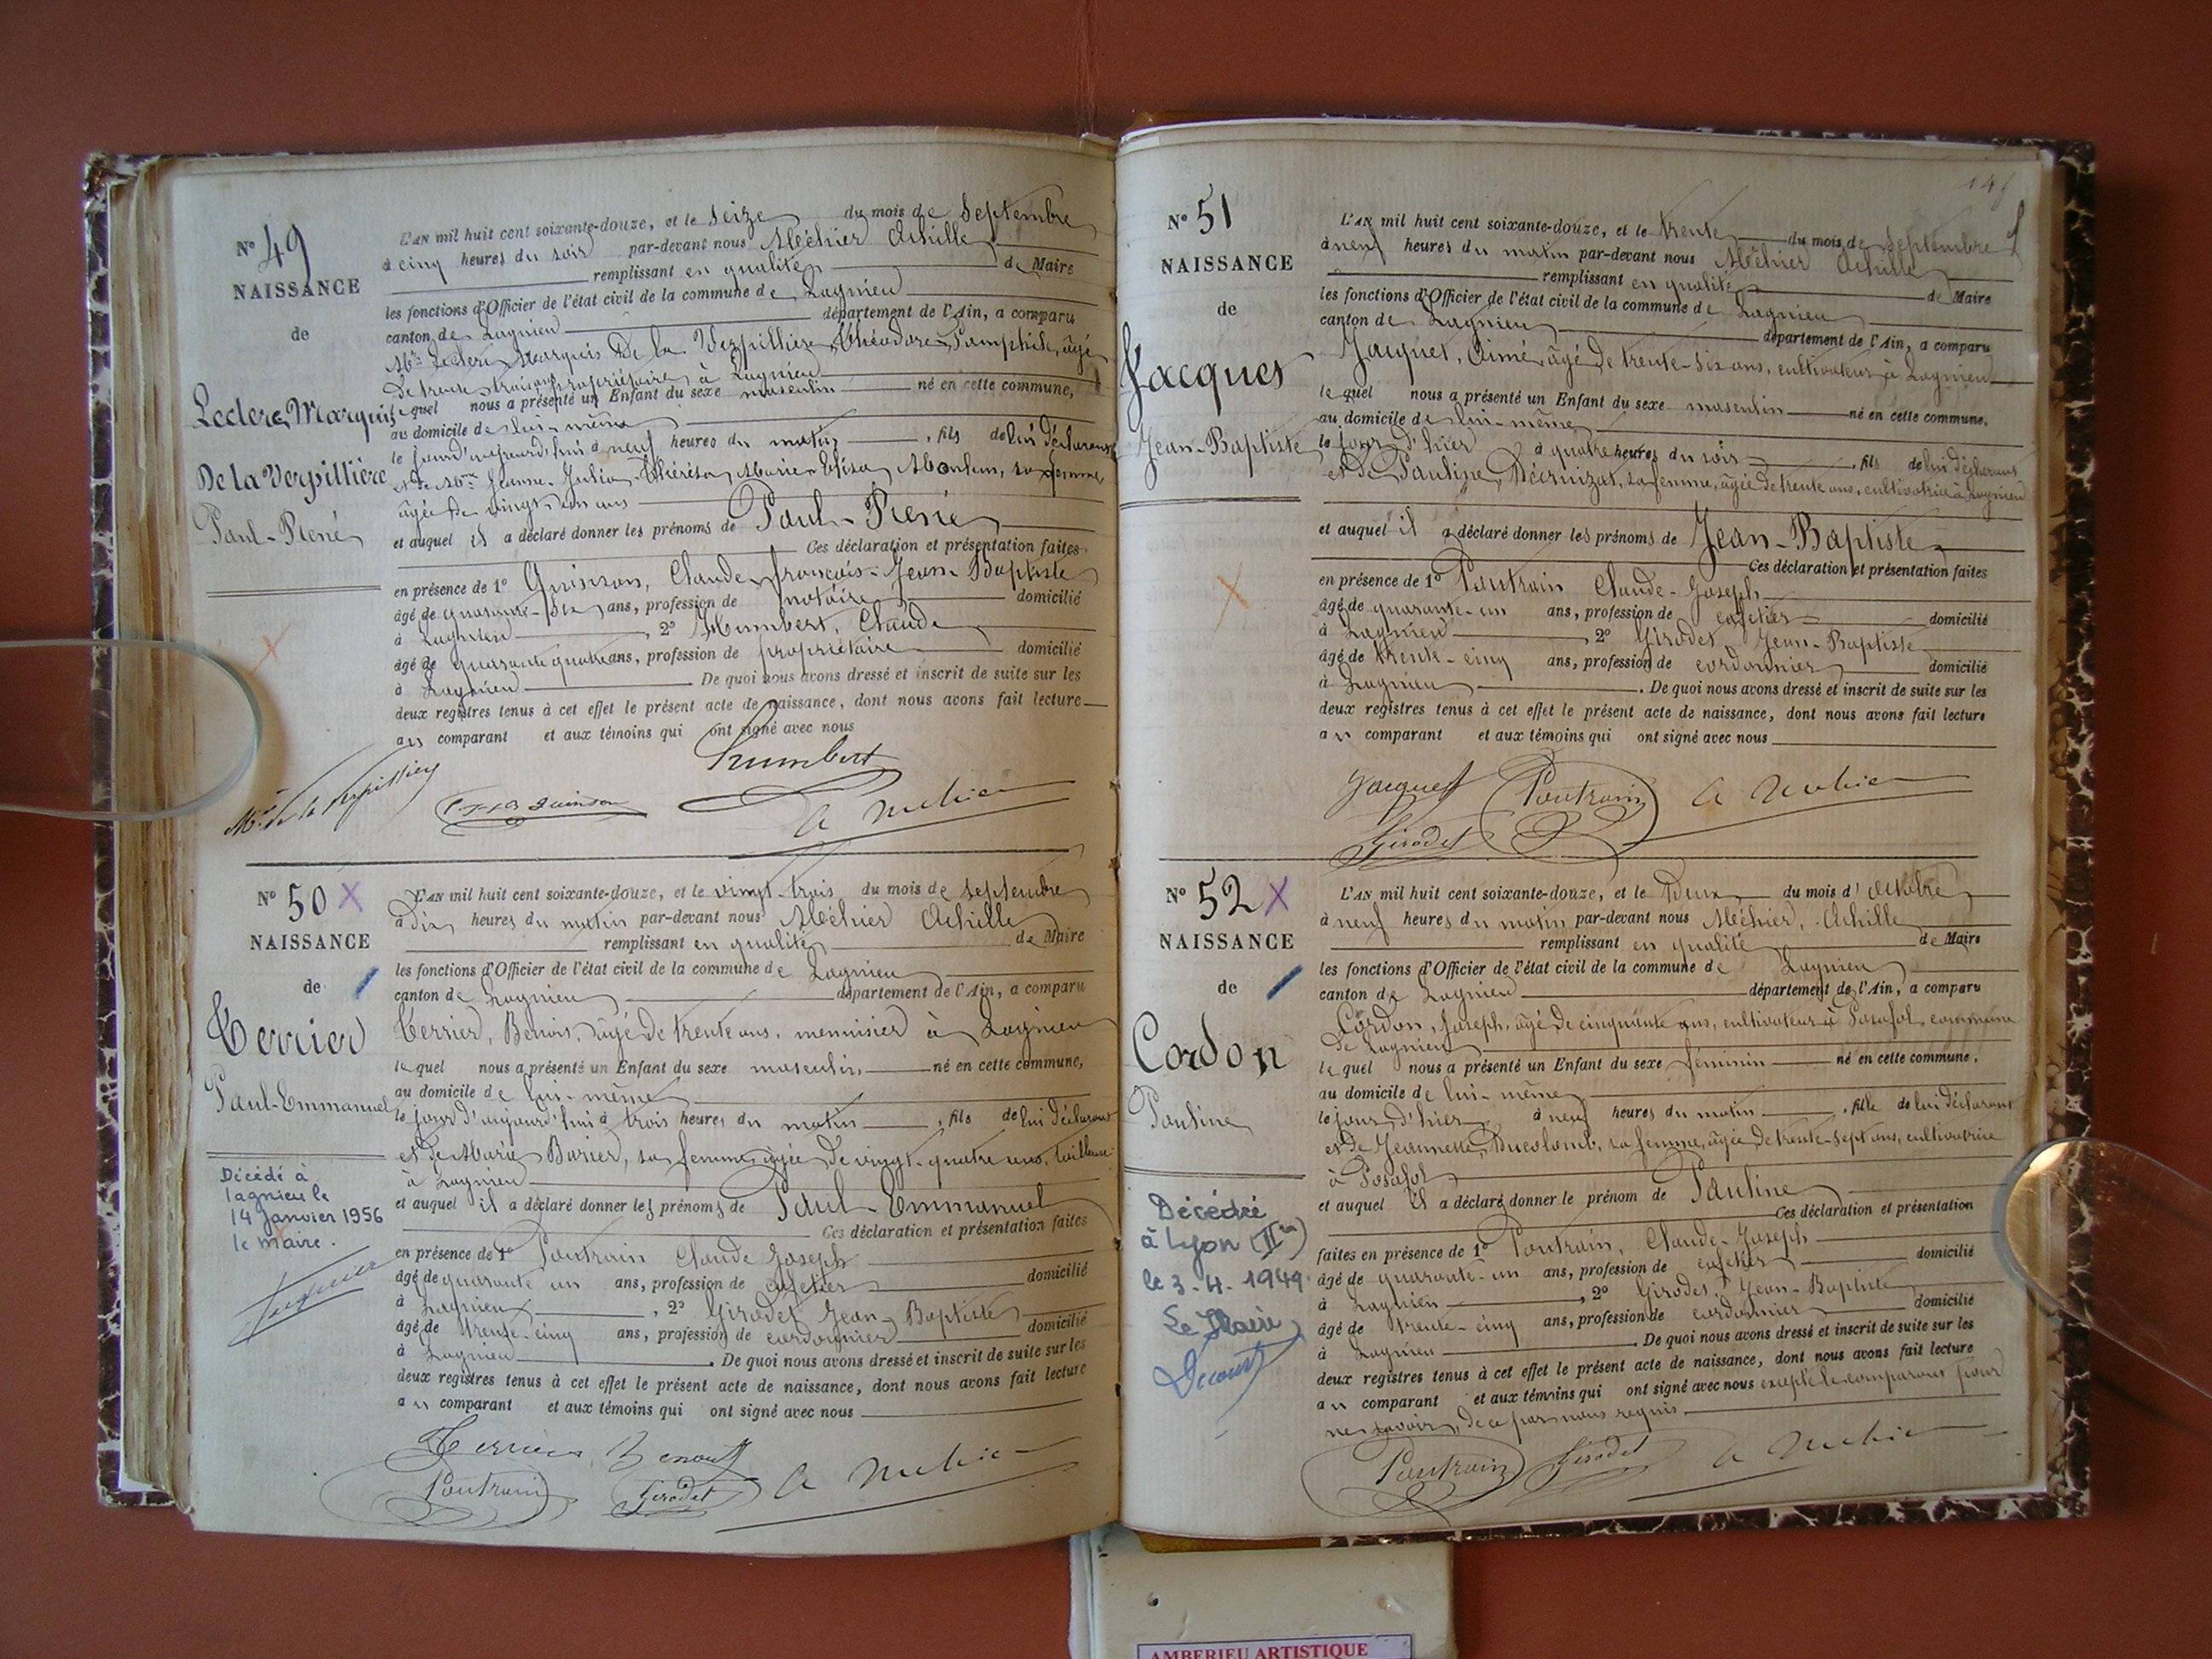 N° 49
NAISSANCE
de
Leclerc, Marquis
De la Verpillière
Paul-René
L'AN mil huit cent soixante-douze, et le seize du mois de Septembre
à cinq heures du soir par-devant nous Méhier Achille
remplissant en qualité de Maire
les fonctions d'Officier de l'état civil de la commune de Lagnieu
canton de Lagnieu département de l'Ain, a comparu
Mr. Leclerc, Marquis De la Verpillière, Théodore-Pamphile, âgé
de trente trois ans propriétaire, à Lagnieu
lequel nous a présenté un Enfant du sexe masculin né en cette commune,
au domicile de lui-même
le jour d'aujourd'hui à neuf heures du matin, fils de lui déclarant
et de Mme Jeanne-Julie-Thérèse-Marie-Elisa sa femme,
âgée de vingt ans
et auquel il a déclaré donner les prénoms de Paul-René
Ces déclaration et présentation faites
en présence de 1° Guinson, Claude-françois-Jean-Baptiste
âgé de quarante-six ans, profession de notaire domicilié
à Lagnieu, 2° Humbert, Claude
âgé de quarante quatre ans, profession de propriétaire domicilié
à Lagnieu De quoi nous avons dressé et inscrit de suite sur les
deux registres tenus à cet effet le présent acte de naissance, dont nous avons fait lecture
au comparant et aux témoins qui ont signé avec nous
Humbert
A Mehier
N° 50 X
NAISSANCE
de
Terrier
Paul-Emmanuel
Décédé à
Lagnieu le
14 Janvier 1956
le maire.
L'AN mil huit cent soixante-douze, et le vingt trois du mois de septembre
à dix heures du matin par-devant nous Méhier Achille
remplissant en qualité de Maire
les fonctions d'Officier de l'état civil de la commune de Lagnieu
canton de Lagnieu département de l'Ain, a comparu
Terrier, Benoit, âgé de trente ans, menuisier à Lagnieu
lequel nous a présenté un Enfant du sexe masculin, né en cette commune,
au domicile de lui-même
le jour d'aujourd'hui à trois heures du matin, fils de lui déclarant
et de Marie Barier, sa femme, âgée de vingt-quatre ans, tailleuse
à Lagnieu
et auquel il a déclaré donner les prénoms de Paul-Emmanuel
Ces déclaration et présentation faites
en présence de 1° Poutrain Claude Joseph
âgé de quarante un ans, profession de cafetier domicilié
à Lagnieu, 2° Girodet Jean Baptiste
âgé de trente-cinq ans, profession de cordonnier domicilié
à Lagnieu. De quoi nous avons dressé et inscrit de suite sur les
deux registres tenus à cet effet le présent acte de naissance, dont nous avons fait lecture
au comparant et aux témoins qui ont signé avec nous
Terrier Benoit
Poutrain Girodet A Mehier
N° 51
NAISSANCE
de
Jacques
Jean-Baptiste
L'AN mil huit cent soixante-douze, et le trente du mois de Septembre
à neuf heures du matin par-devant nous Méhier Achille
remplissant en qualité de Maire
les fonctions d'Officier de l'état civil de la commune de Lagnieu
canton de Lagnieu département de l'Ain, a comparu
Jacques, Aimé, âgé de trente-six ans, cultivateur à Lagnieu
lequel nous a présenté un Enfant du sexe masculin né en cette commune,
au domicile de lui-même
le jour d'hier à quatre heures du soir, fils de lui déclarant
et de Pauline sa femme, âgée de trente ans, cultivatrice à Lagnieu
et auquel il a déclaré donner les prénoms de Jean-Baptiste
Ces déclaration et présentation faites
en présence de 1° Poutrain Claude-Joseph
âgé de quarante-un ans, profession de cafetier domicilié
à Lagnieu, 2° Girodet Jean-Baptiste
âgé de trente-cinq ans, profession de cordonnier domicilié
à Lagnieu. De quoi nous avons dressé et inscrit de suite sur les
deux registres tenus à cet effet le présent acte de naissance, dont nous avons fait lecture
au comparant et aux témoins qui ont signé avec nous
Jacques Poutrain A Mehier
Girodet
N° 52 X
NAISSANCE
de
Cordon
Pauline
Décédée
à Lyon (IIe)
le 3.4.1949
Le Maire
L'AN mil huit cent soixante-douze, et le Deux du mois d'Octobre
à neuf heures du matin par-devant nous Méhier, Achille
remplissant en qualité de Maire
les fonctions d'Officier de l'état civil de la commune de Lagnieu
canton de Lagnieu département de l'Ain, a comparu
Cordon, Joseph, âgé de cinquante ans, cultivateur à Posafol, commune
de Lagnieu
lequel nous a présenté un Enfant du sexe féminin né en cette commune,
au domicile de lui-même
le jour d'hier, à neuf heures du matin, fille de lui déclarant
et de Jeannette, Ducolomb, sa femme, âgée de trente-sept ans, cultivatrice
à Posafol
et auquel il a déclaré donner le prénom de Pauline
Ces déclaration et présentation
faites en présence de 1° Poutrain, Claude-Joseph
âgé de quarante-un ans, profession de cafetier domicilié
à Lagnieu, 2° Girodet, Jean-Baptiste
âgé de trente-cinq ans, profession de cordonnier domicilié
à Lagnieu. De quoi nous avons dressé et inscrit de suite sur les
deux registres tenus à cet effet le présent acte de naissance, dont nous avons fait lecture
au comparant et aux témoins qui ont signé avec nous excepté le comparant pour
ne savoir, de ce par nous requis
Poutrain Girodet A Mehier
AMBERIEU ARTISTIQUE